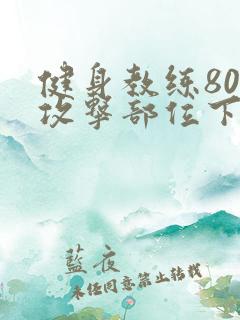 健身教练80
攻撃部位下
藍夜
未经同意禁止转载